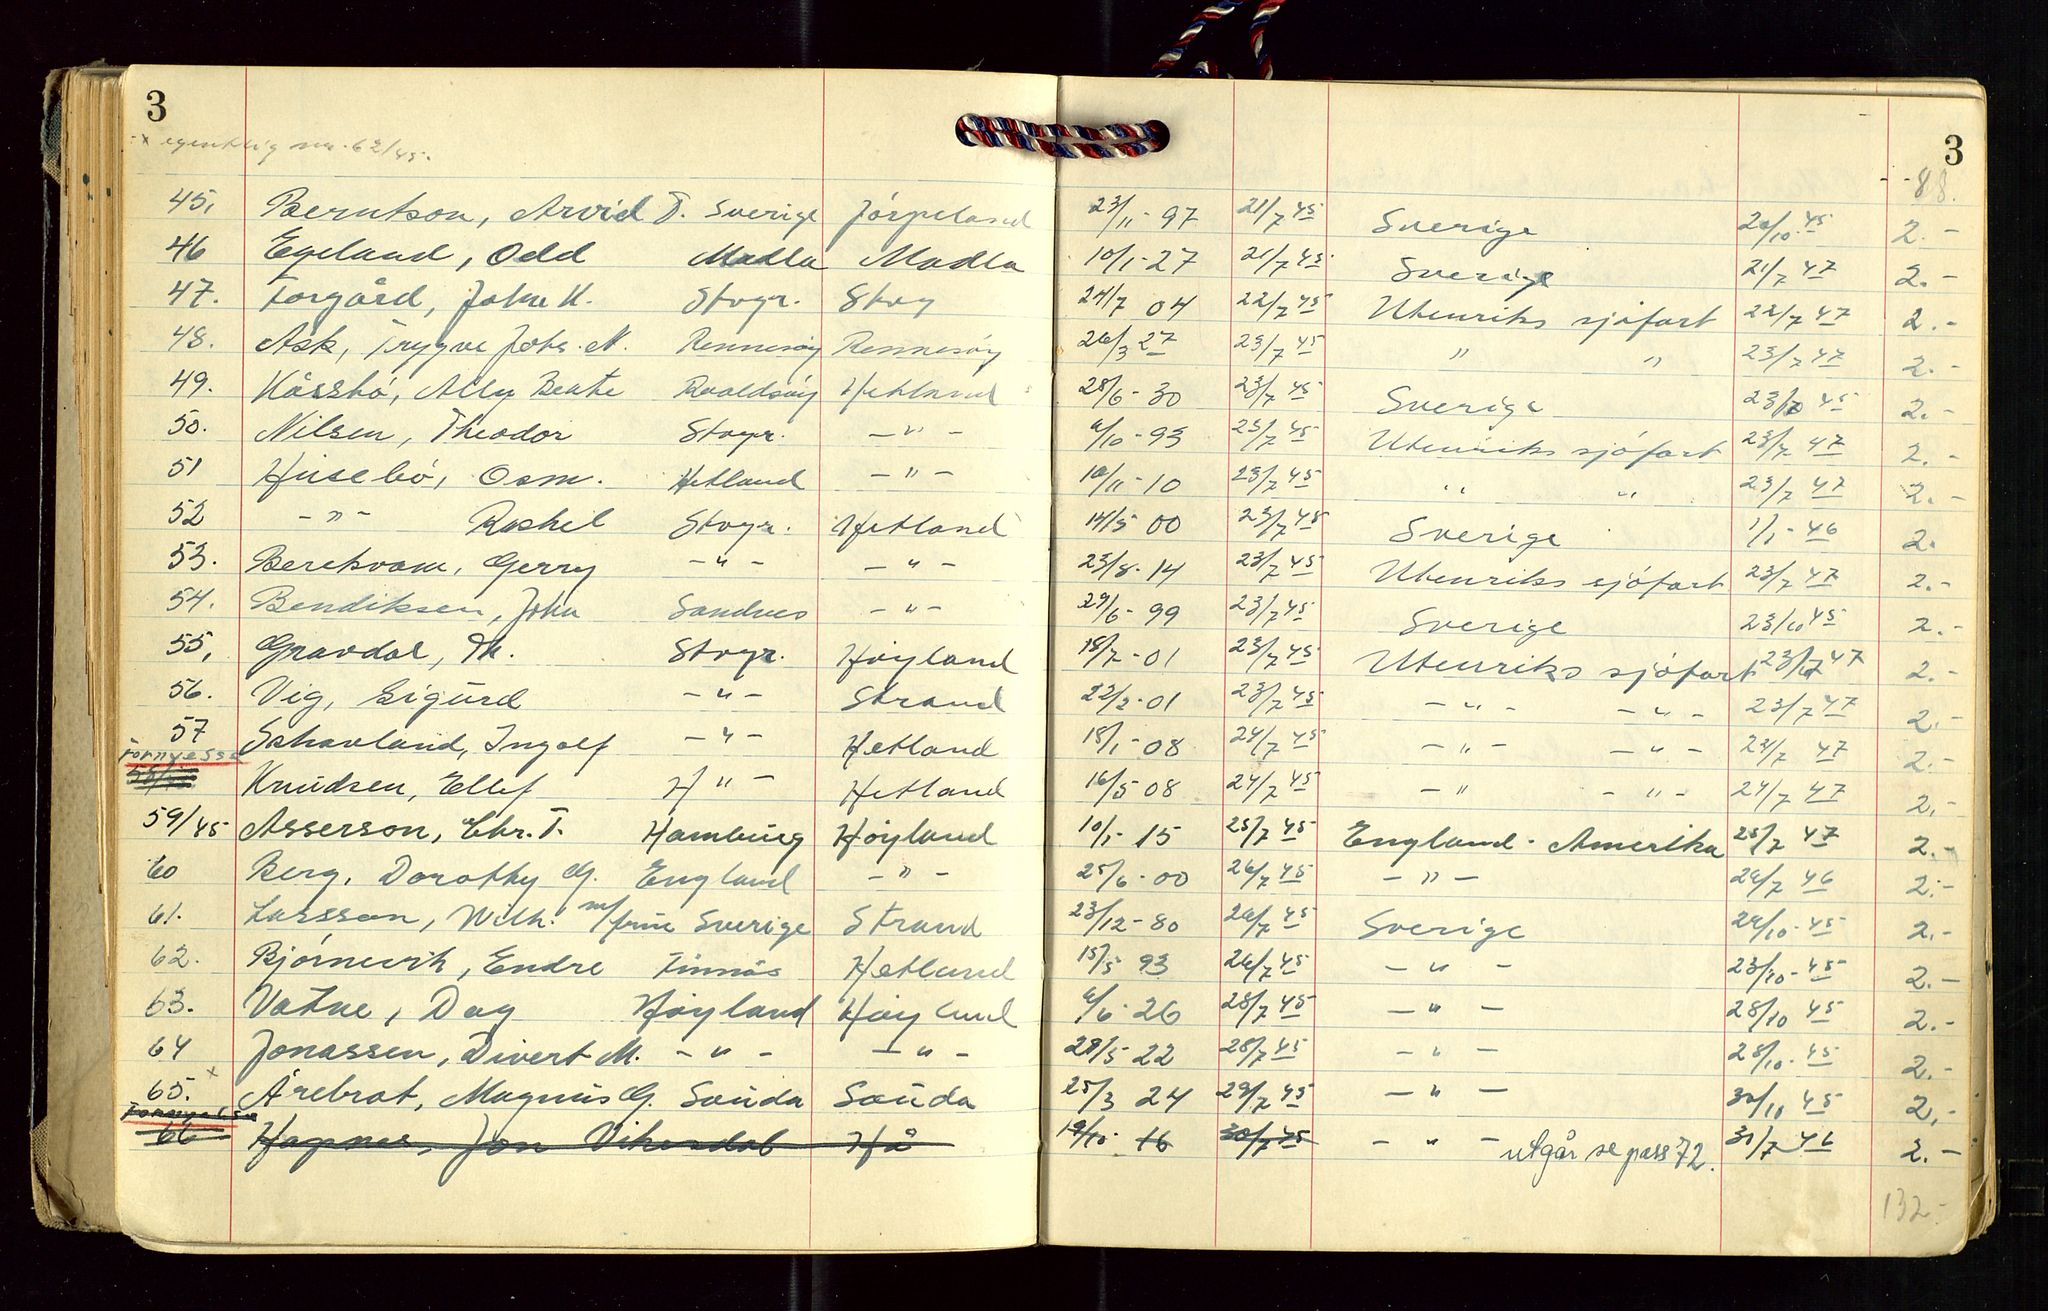 3
3
x egentlig nr. 62/45.
88.
45. Berntson, Arvid T. Sverige Jörpeland 23/11-97 21/7 45 Sverige 20/10.45 2.-
46 Egeland, Odd Madla Madla 10/1-27 21/7 45 Sverige 21/7 47 2.-
47. Torgård, John K. Stvgr. Stvg 24/7 04 22/7 45 Utenriks sjöfart 22/7 47 2.-
48. Ask, Trygve Johs. M. Rennesöy Rennesöy 26/3 27 23/7 45 " " 23/7 47 2.-
49. Kåsbö, Ally Beate Roaldsöy Hetland 28/6-30 23/7 45 Sverige 23/ 45 2.-
50. Nilsen, Theodor Stvgr. -"- 6/10-93 23/7 45 Utenriks sjöfart 23/7 47 2.-
51 Husebö, Osm. Hetland -"- 10/11-10 23/7 45 " " 23/7 47 2.-
52 -"- Rakel Stvgr. Hetland 14/5 00 23/7 45 Sverige 1/1-46 2.
53. Berekvam, Gerry -"- -"- 23/8-14 23/7 45 Utenriks sjöfart 23/7 47 2.-
54. Bendiksen, John Sandnes -"- 29/6-99 23/7 45 Sverige 23/10 45 2.-
55. Gravdal, Th. Stvgr. Höyland 18/7-01 23/7 45 Utenriks sjöfart 23/7 47 2.-
56. Vig, Sigurd -"- Strand 22/2-01 23/7 45 -"- -"- 23/7 47 2.-
57 Schavland, Ingolf -"- Hetland 18/1-08 24/7 45 -"- -"- 23/7 47 2.-
Fornyesse
58/45 Knudsen, Ellef H"- Hetland 16/5-08 24/7 45 -"- -"- 24/7 47 2.-
59/45 Asserson, Chr. T. Hamburg Höyland 10/1-15 25/7 45 England-Amerika 25/7 47 2.-
60 Berg, Dorothy G. England -"- 25/6-00 26/7 45 -"- 26/7 46 2.-
61. Larsson, Wilh. m/frue Sverige Strand 23/12-80 26/7 45 Sverige 24/10-45 2.-
62. Bjørnevik, Endre Finnås Hetland 15/5 93 26/7 45 -"- 23/10-45 2.-
63. Vatne, Dag Høyland Høyland 6/6-26 28/7 45 -"- 28/10 45 2.-
64 Jonassen, Divert M. -"- -"- 29/5 22 28/7 45 -"- 28/10.45 2.-
65. x Årebrot, Magnus G. Sauda Sauda 25/3 24 29/7 45 -"- 30/10 45 2.-
Fornyelse
66 Hognes, Jon Vikesdal Hå 19/10-16 30/7 45 -"- utgår se pass 72. 31/7 46 2.-
132.-